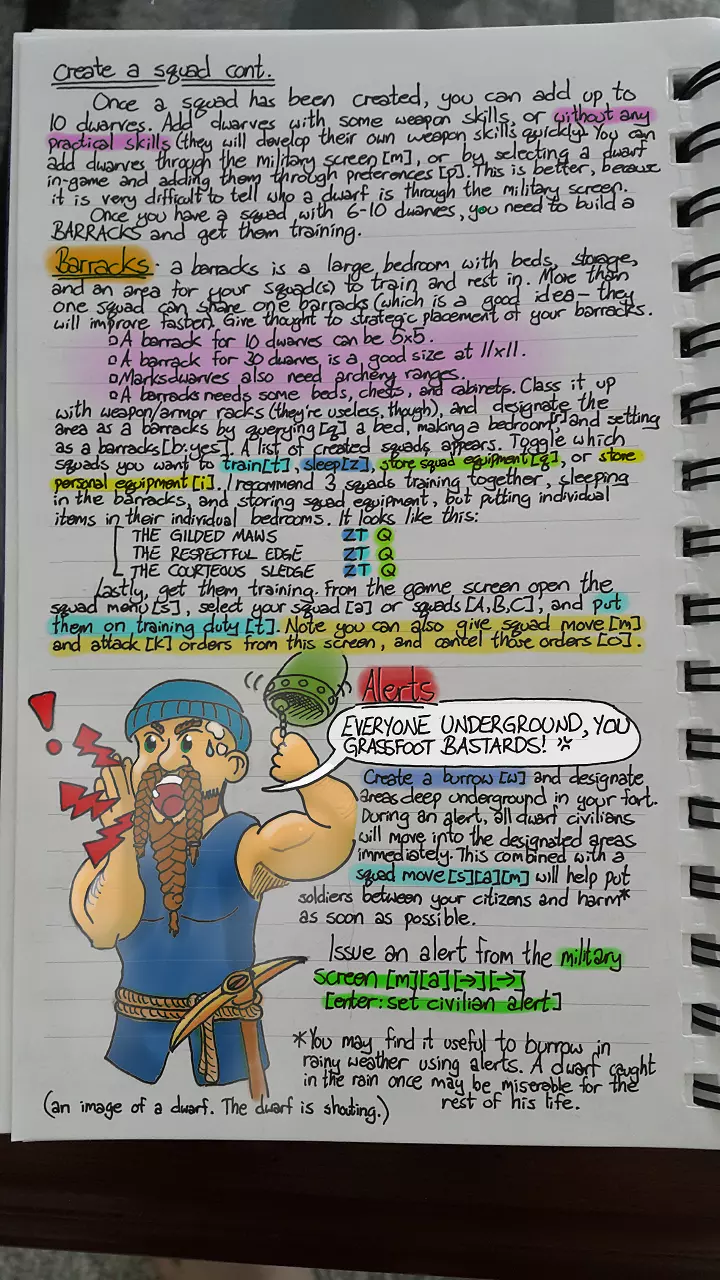 Create a squad cont.
Once a squad has been created, you can add up to
10 dwarves. Add dwarves with some weapon skills, or without any
practical skills (they will develop their own weapon skills quickly). You can
add dwarves through the military screen [m], or by selecting a dwarf
in-game and adding them through preferences [p]. This is better, because
it is very difficult to tell who a dwarf is through the military screen.
Once you have a squad with 6-10 dwarves, you need to build a
BARRACKS and get them training.
Barracks - a barracks is a large bedroom with beds, storage,
and an area for your squad(s) to train and rest in. More than
one squad can share one barracks (which is a good idea - they
will improve faster). Give thought to strategic placement of your barracks.
▫A barrack for 10 dwarves can be 5x5.
▫A barrack for 30 dwarves is a good size at 11x11.
▫Marksdwarves also need archery ranges.
▫A barracks needs some beds, chests, and cabinets. Class it up
with weapon/armor racks (they're useless, though), and designate the
area as a barracks by querying [q] a bed, making a bedroom[r] and setting
as a barracks [b:yes]. A list of created squads appears. Toggle which
squads you want to train[t], sleep[z], store squad equipment[q], or store
personal equipment [i]. I recommend 3 squads training together, sleeping
in the barracks, and storing squad equipment, but putting individual
items in their individual bedrooms. It looks like this:
THE GILDED MAWS ZT Q
THE RESPECTFUL EDGE ZT Q
THE COURTEOUS SLEDGE ZT Q
Lastly, get them training. From the game screen open the
squad menu [s], select your squad [a] or squads [A,B,C], and put
them on training duty [t]. Note you can also give squad move [m]
and attack [k] orders from this screen, and cancel those orders [o].
Alerts
EVERYONE UNDERGROUND, YOU
GRASSFOOT BASTARDS! *
!
Create a burrow [w] and designate
areas deep underground in your fort.
During an alert, all dwarf civilians
will move into the designated areas
immediately. This combined with a
squad move [s][a][m] will help put
soldiers between your citizens and harm*
as soon as possible.
Issue an alert from the military
screen [m][a][→][→]
[enter: set civilian alert]
*You may find it useful to burrow in
rainy weather using alerts. A dwarf caught
in the rain once may be miserable for the
rest of his life.
(an image of a dwarf. The dwarf is shouting.)